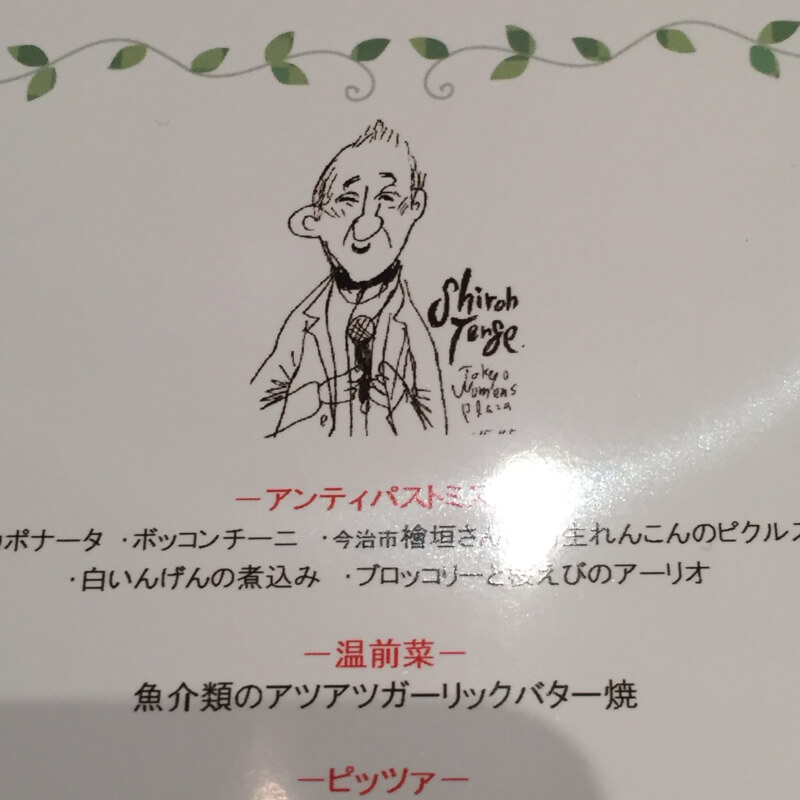 Shiroh
Tenge.
Tokyo
Womens
plaza
－アンティパストミ
ポナータ ・ボッコンチーニ ・今治市檜垣さん 生れんこんのピクルス
・白いんげんの煮込み ・ブロッコリーと桜えびのアーリオ
－温前菜－
魚介類のアツアツガーリックバター焼
－ピッツァ－